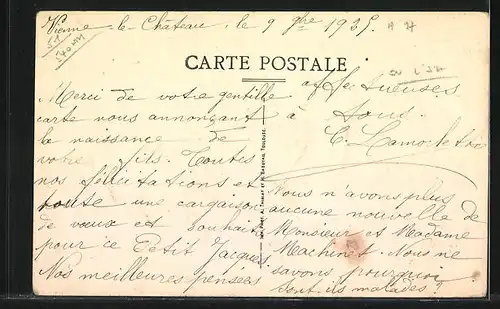 Vienne-le-Château, le 9 9bre 1935.
CARTE POSTALE
Merci de votre gentille
carte nous annonçant
la naissance de
votre fils. Toutes
nos félicitations et
toute une cargaison
de vœux et souhaits
pour ce Petit Jacques
Nos meilleures pensées
affectueuses
à tous.
Nous n'avons plus
aucune nouvelle de
Monsieur et Madame
Machinet. Nous ne
savons pourquoi
Sont-ils malades?